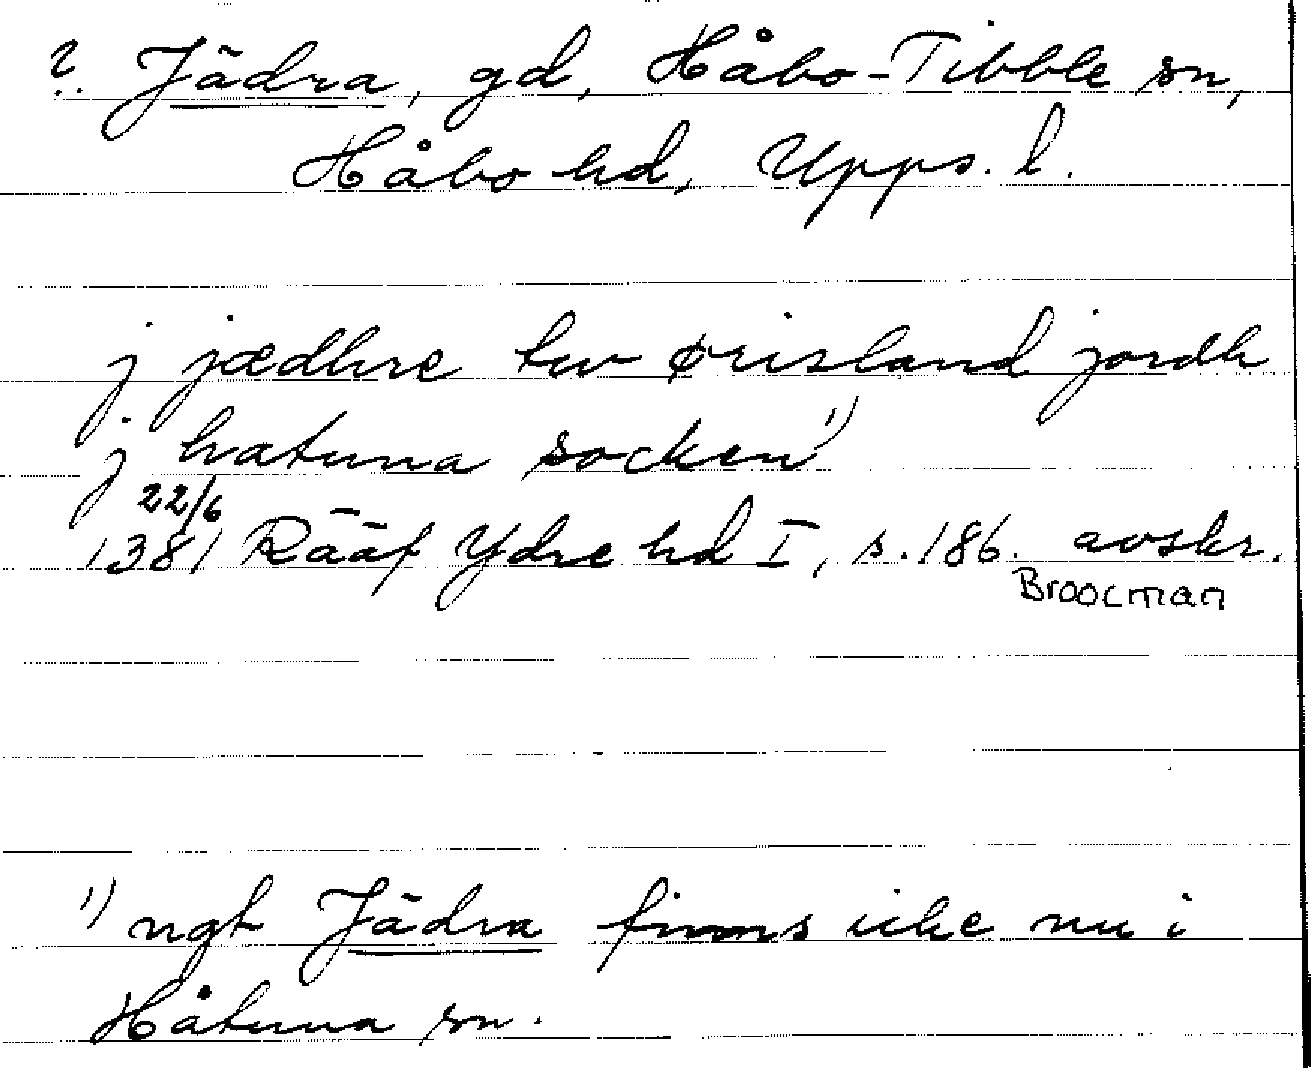 ? Jädra, gd, Håbo-Tibble sn,
Håbo hd, Upps. l.
j jædhre tw ørisland jordh
j hatuna socken 1)
22/6
1381 Rääf Ydre hd I, s. 186. avskr.
Broocman
1) ngt Jädra finns icke nu i
Håtuna sn.